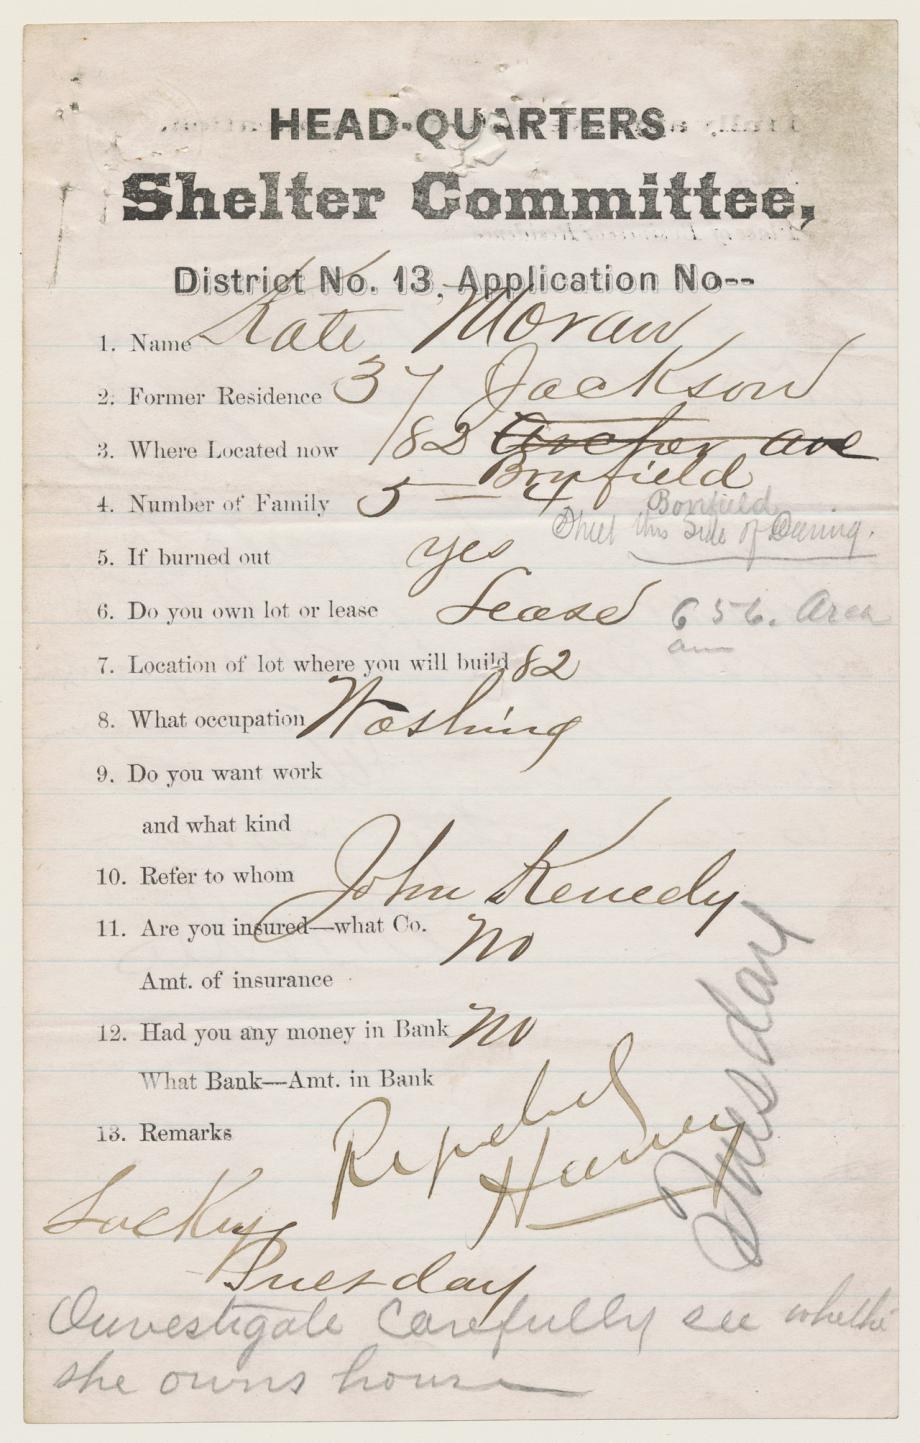 HEAD-QUARTERS
Shelter Committee,
District No. 13, Application No--
1. Name Kate Moran
2. Former Residence 37 Jackson
3. Where Located now 182 Archer ave
Bonfield
4. Number of Family 5 — 4
Bonfield
this side of Deering.
5. If burned out yes
6. Do you own lot or lease Lease
656. Arch
av
7. Location of lot where you will build 82
8. What occupation Washing
9. Do you want work
and what kind
10. Refer to whom John Kenedy
11. Are you insured—what Co. No
Amt. of insurance
12. Had you any money in Bank No
What Bank—Amt. in Bank
13. Remarks
Tuesday
Tuesday
Investigate carefully see whethe
she owns house